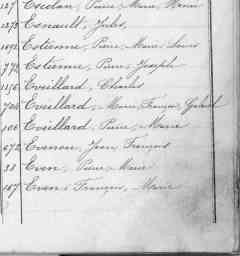 127 Escolan, Pierre, Marie, 
1273 Esnault, Jules,
1092 Estienne, Pierre, Marie Louis
772 Estienne, Pierre Joseph
1176 Eveillard, Charles
706 Eveillard, Marie, François, Gabriel
106 Eveillard, Pierre, Marie
672 Evenou, Jean François
38 Even, Pierre, Marie
107 Even François, Marie